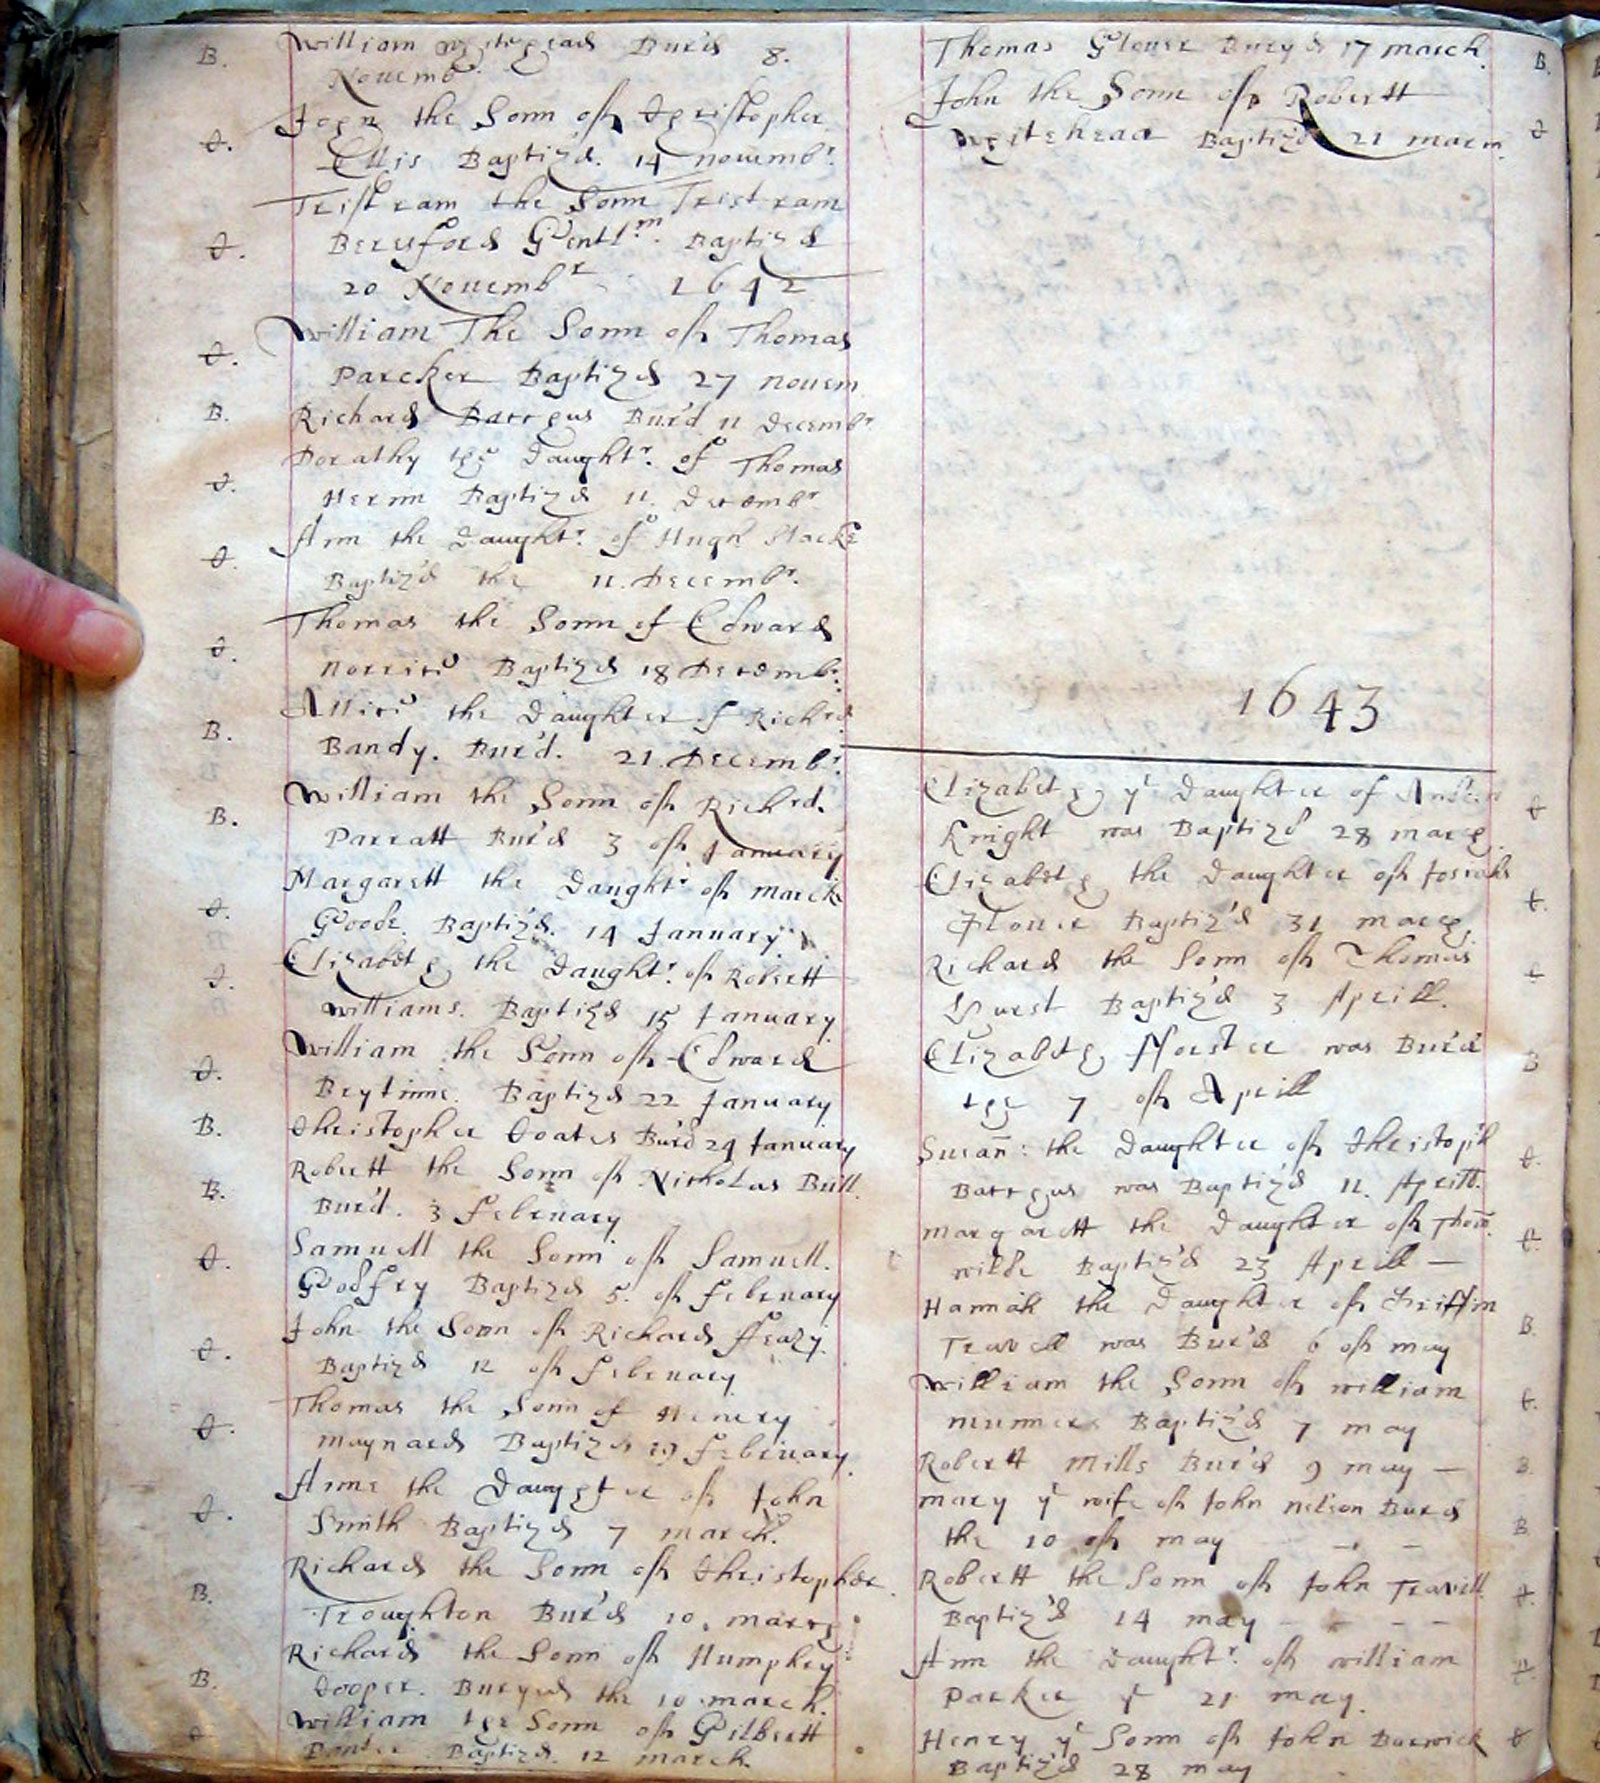 B. William Whitehead Bur'd 8.
Novemb^r.
John the Sonn off Christopher
C. Ellis Baptiz'd. 14 novemb^r.
Tristram the Sonn Tristram
C. Berisford Gentl^m. Baptizd
20 Novemb^r 1642
William The Sonn off Thomas
C. Parcker Baptizd 27 novem
B. Richard Barrhus Bur'd 11 Decemb^r
Dorathy the Daught^r. of Thomas
C. Hernn Baptizd 11. Decemb^r
Ann the Daught^r. of Hugh Stacke
C. Baptiz'd the 11. Decemb^r.
Thomas the Sonn of Edward
C. Norrice Baptizd 18 Decemb^r.
Allice the Daughter of Rich^rd
B. Bandy. Bur'd. 21. Decemb^r.
William the Sonn off Rich^rd.
B. Parratt Bur'd 3 off January
Margarett the Daught^r off Marcke
C. Goode. Baptiz'd. 14 January
Elizabeth the Daught^r. off Robertt
C. Williams. Baptizd 15 January
William the Sonn off Edward
C. Brytinne. Baptizd 22 January
B. Christopher Coates Bur'd 24 January
Robertt the Sonn off Nicholas Bull.
B. Bur'd. 3 February
Samuell the Sonn off Samuell.
C. Godfry Baptizd 5. off February
John the Sonn off Richard ffeazy.
C. Baptizd 12 off February
Thomas the Sonn of Henery
C. Maynard Baptizd 19 February
Anne the Daughter off John
C. Smith Baptizd 7 march.
Richard the Sonn off Christopher
B. Troughton Bur'd 10. march
Richard the Sonn off Humphey
B. Cooper. Buryed the 10 march.
William the Sonn off Gilbertt
C. Baptizd. 12 march
Thomas Glover Buryd 17 march. B.
John the Sonn off Robertt
Whitehead Baptiz'd 21 march. C
1643
Elizabeth y^e Daughter of
Knight was Baptizd 28 march C
Elizabeth the Daughter off Josiah
Flover Baptiz'd 31 march C.
Richard the Sonn off Thomas
Hurst Baptiz'd 3 Aprill. C
Elizabeth fforster was Bur'd
the 7 off Aprill B
Susan̄: the Daughter off Christoph
Barrhus was Baptiz'd 11. Aprill. C.
Margarett the Daughter off Thom̄.
wilde Baptiz'd 23 Aprill — C.
Hannah the Daughter off Griffin
Travell was Bur'd 6 off may B.
William the Sonn off william
Baptiz'd 7 may C.
Robertt Mills Bur'd 9 may — B.
Mary y^e wife off John Nelson Burd
the 10 off may - - B
Robertt the Sonn off John Travill
Baptiz'd 14 may - - - - C.
Ann the Daught^r. off william
Parker y^e 21 may. C.
Henry y^e Sonn off John Barwick C
Baptiz'd 28 may